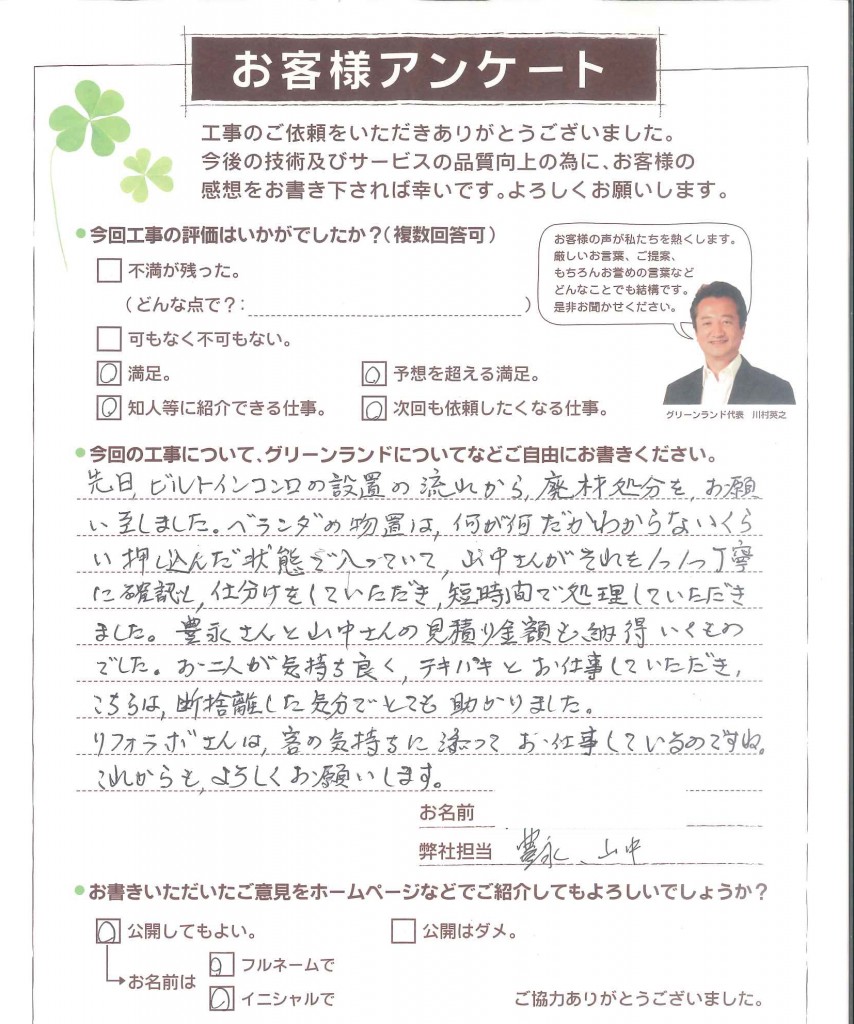 お客様アンケート
工事のご依頼をいただきありがとうございました。
今後の技術及びサービスの品質向上の為に、お客様の
感想をお書き下されば幸いです。よろしくお願いします。
今回工事の評価はいかがでしたか？（複数回答可）
不満が残った。
（どんな点で？：　）
可もなく不可もない。
満足。
予想を超える満足。
知人等に紹介できる仕事。
次回も依頼したくなる仕事。
お客様の声が私たちを熱くします。
厳しいお言葉、ご提案、
もちろんお誉めの言葉など
どんなことでも結構です。
是非お聞かせください。
グリーンランド代表　川村英之
今回の工事について、グリーンランドについてなどご自由にお書きください。
先日、ビルトインコンロの設置の流れから、廃材処分を、お願
い至しました。ベランダの物置は、何が何だかわからないくら
い押し込んだ状態で入っていて、山中さんがそれを1つ1つ丁寧
に確認し、仕分けをしていただき、短時間で処理していただき
ました。豊永さんと山中さんの見積り金額も、納得いくもの
でした。お二人が気持ち良く、テキパキとお仕事していただき、
こちらは、断捨離した気分でとても助かりました。
リフォラボさんは、客の気持ちに添ってお仕事しているのですね。
これからも、よろしくお願いします。
お名前
弊社担当　豊永、山中
お書きいただいたご意見をホームページなどでご紹介してもよろしいでしょうか？
公開してもよい。
公開はダメ。
お名前は
フルネームで
イニシャルで
ご協力ありがとうございました。